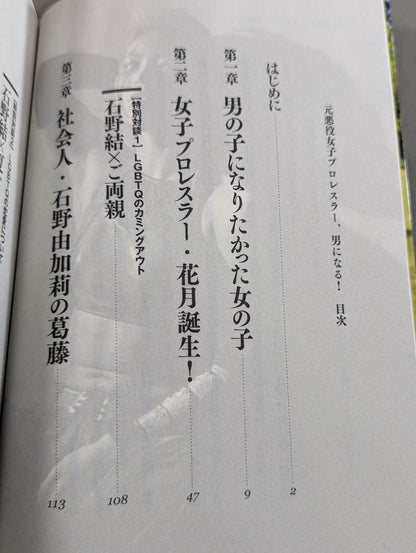 元悪役女子プロレスラー、男になる! 目次
はじめに 2
第一章 男の子になりたかった女の子 9
第二章 女子プロレスラー・花月誕生! 47
[特別対談1] LGBTQのカミングアウト
石野結×ご両親 108
第三章 社会人・石野由加莉の葛藤 113